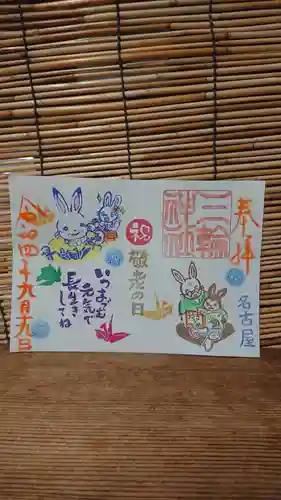 奉拝
三輪
神社
名古屋
祝
敬老の日
いつまでも
元気で
長生き
してね
令和四年九月九日